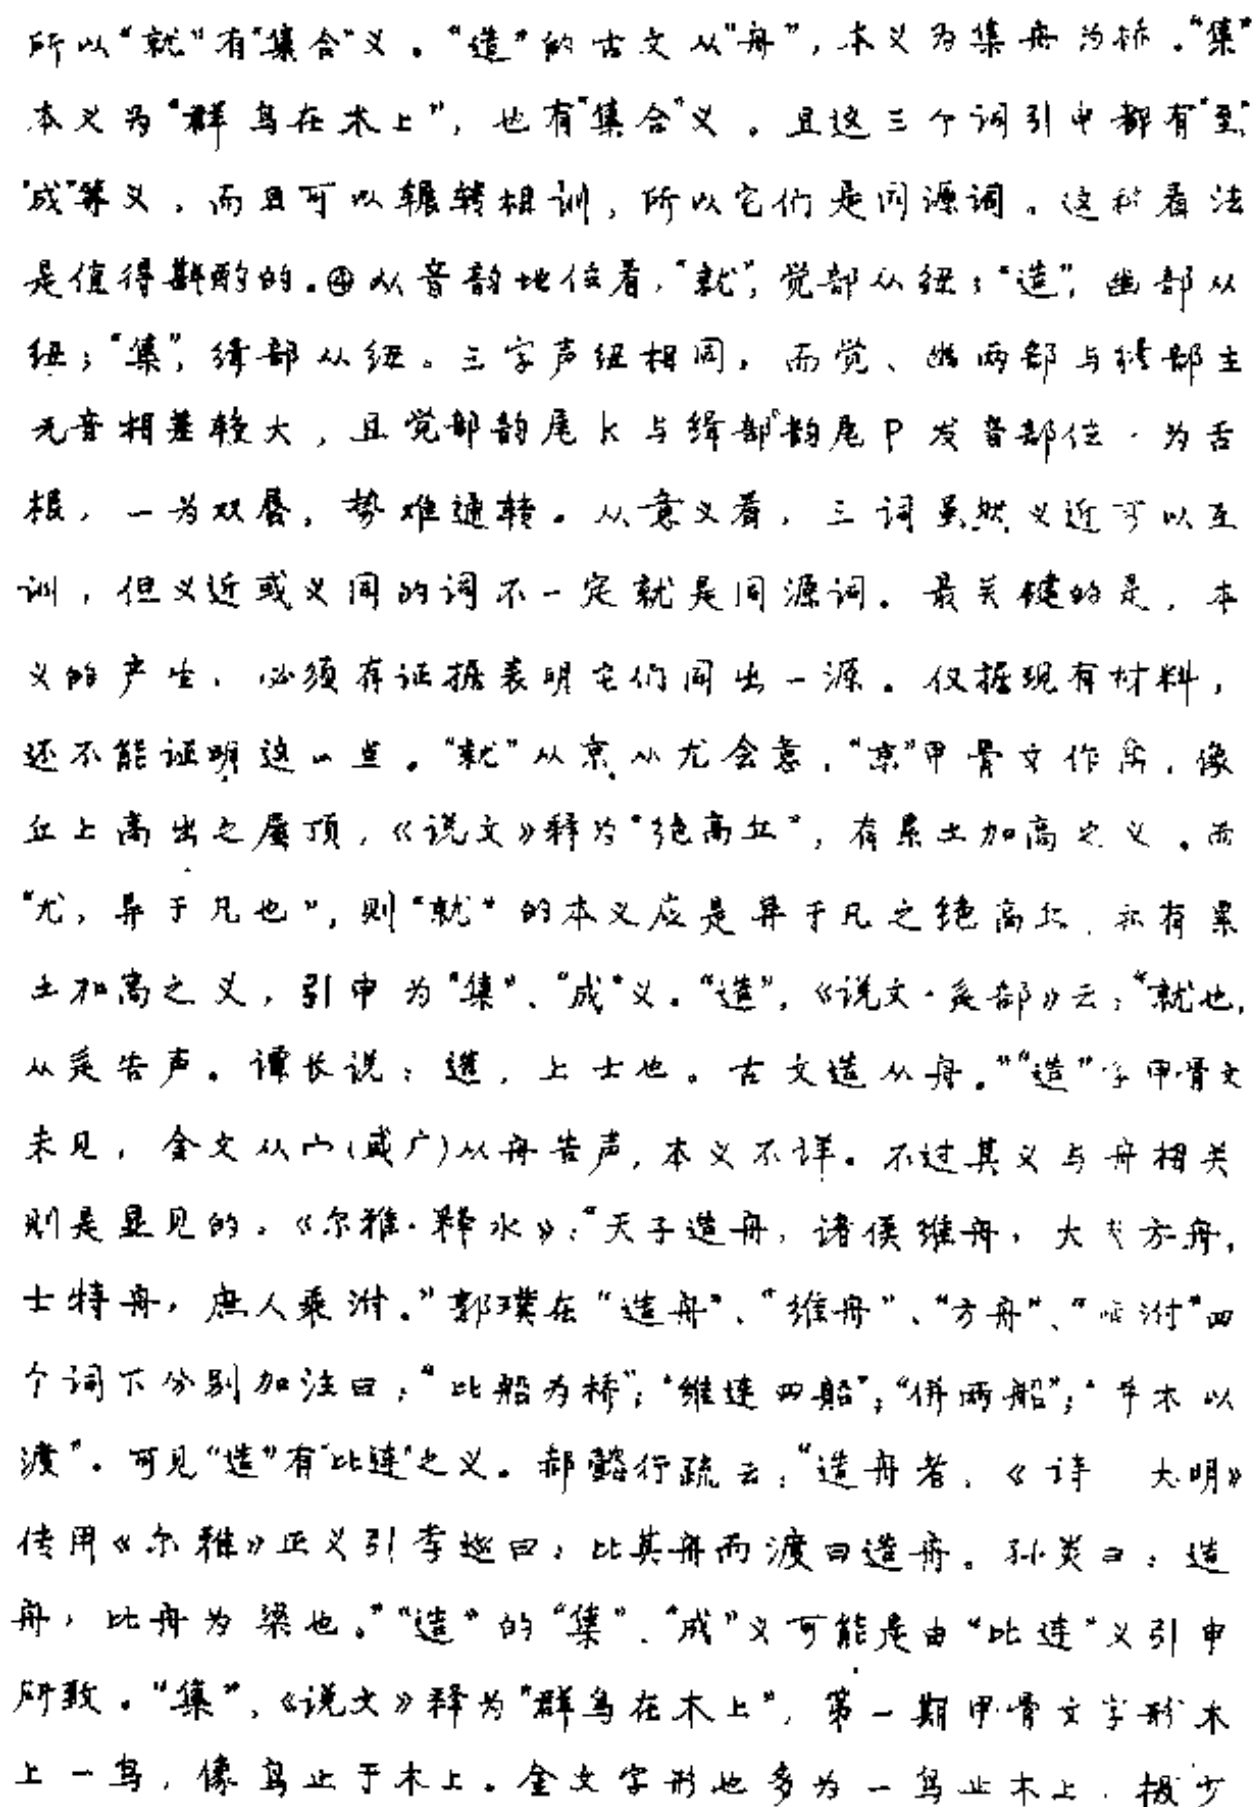 所以“就”有“集合”义。“造”的古文从“舟”，本义为集舟为桥。“集”
本义为“群鸟在木上”，也有“集合”义。且这三个词引申都有“至”
“成”等义，而且可以辗转相训，所以它们是同源词。这种看法
是值得斟酌的。④从音韵地位看，“就”，觉部从纽；“造”，幽部从
纽；“集”，缉部从纽。三字声纽相同，而觉、幽两部与缉部主
元音相差较大，且觉部韵尾k与缉部韵尾p发音部位一为舌
根，一为双唇，势难通转。从意义看，三词虽然义近可以互
训，但义近或义同的词不一定就是同源词。最关键的是，本
义的产生，必须有证据表明它们同出一源。仅据现有材料，
还不能证明这一点。“就”从京从尤会意，“京”甲骨文作，像
丘上高出之屋顶，《说文》释为“绝高丘”，有累土加高之义。而
“尤，异于凡也”，则“就”的本义应是异于凡之绝高丘，亦有累
土加高之义，引申为“集”、“成”义。“造”，《说文·辵部》云：“就也，
从辵告声。谭长说：造，上士也。古文造从舟。”“造”字甲骨文
未见，金文从宀(或广)从舟告声，本义不详。不过其义与舟相关
则是显见的。《尔雅·释水》：“天子造舟，诸侯维舟，大夫方舟，
士特舟，庶人乘泭。”郭璞在“造舟”、“维舟”、“方舟”、“乘泭”四
个词下分别加注曰：“比船为桥”；“维连四船”；“併两船”；“并木以
渡”。可见“造”有“比连”之义。郝懿行疏云：“造舟者，《诗 大明》
传用《尔雅》正义引李巡曰：比其舟而渡曰造舟。孙炎曰：造
舟，比舟为梁也。”“造”的“集”、“成”义可能是由“比连”义引申
所致。“集”，《说文》释为“群鸟在木上”，第一期甲骨文字形木
上一鸟，像鸟止于木上。金文字形也多为一鸟止木上，极少